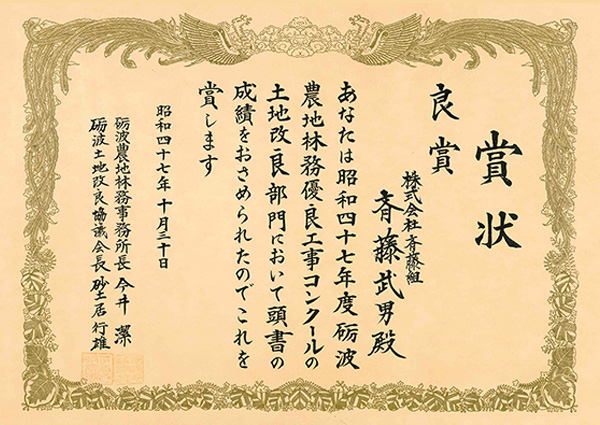 賞状
良賞
株式会社斉藤組
斉藤武男殿
あなたは昭和四十七年度砺波
農地林務優良工事コンクールの
土地改良部門において頭書の
成績をおさめられたのでこれを
賞します
昭和四十七年十月三十日
砺波農地林務事務所長 今井 潔
砺波土地改良協議会長 砂土居 行雄